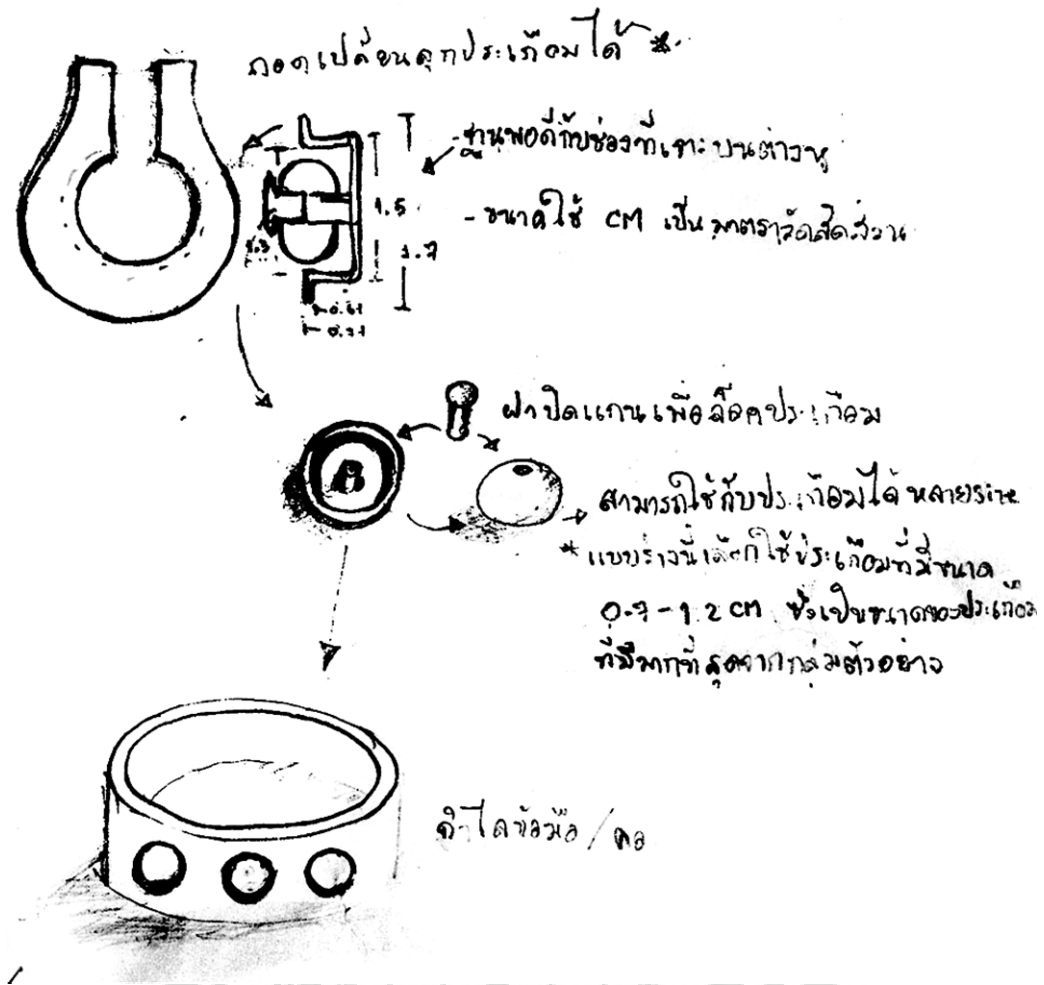 ถอดเปลี่ยนลูกประเกือมได้ *
- ฐานพอดีกับช่องที่เจาะบนต่างหู
- ขนาดใช้ CM เป็นมาตราวัดสัดส่วน
1.5
1.7
ฝาปิดแกนเพื่อล็อคประเกือม
สามารถใช้กับประเกือมได้หลายsize
* แบบร่างนี้เลือกใช้ประเกือมที่มีขนาด
0.7-1.2 CM ซึ่งเป็นขนาดของประเกือม
ที่มีมากที่สุดจากกลุ่มตัวอย่าง
กำไลข้อมือ / คอ